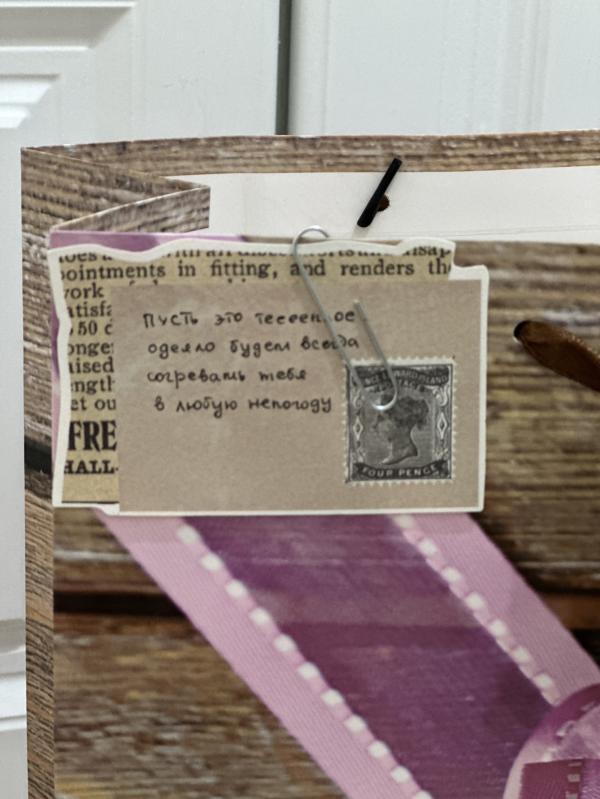 ointments in fitting, and renders the
york
atisfa
50 d
onge
aised
ength
et ou
FRE
HALL
Пусть это теееенлое
одеяло будет всегда
согревать тебя
в любую непогоду
FOUR PENCE